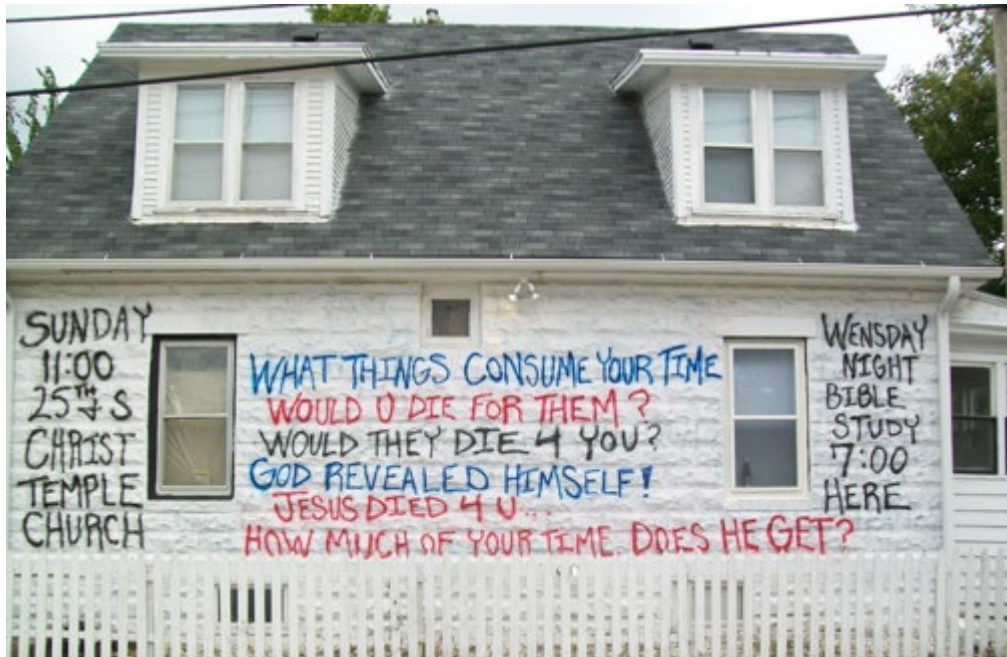 SUNDAY
11:00
25TH & S
CHRIST
TEMPLE
CHURCH
WHAT THINGS CONSUME YOUR TIME
WOULD U DIE FOR THEM?
WOULD THEY DIE 4 YOU?
GOD REVEALED HIMSELF!
JESUS DIED 4 U...
HOW MUCH OF YOUR TIME. DOES HE GET?
WENSDAY
NIGHT
BIBLE
STUDY
7:00
HERE